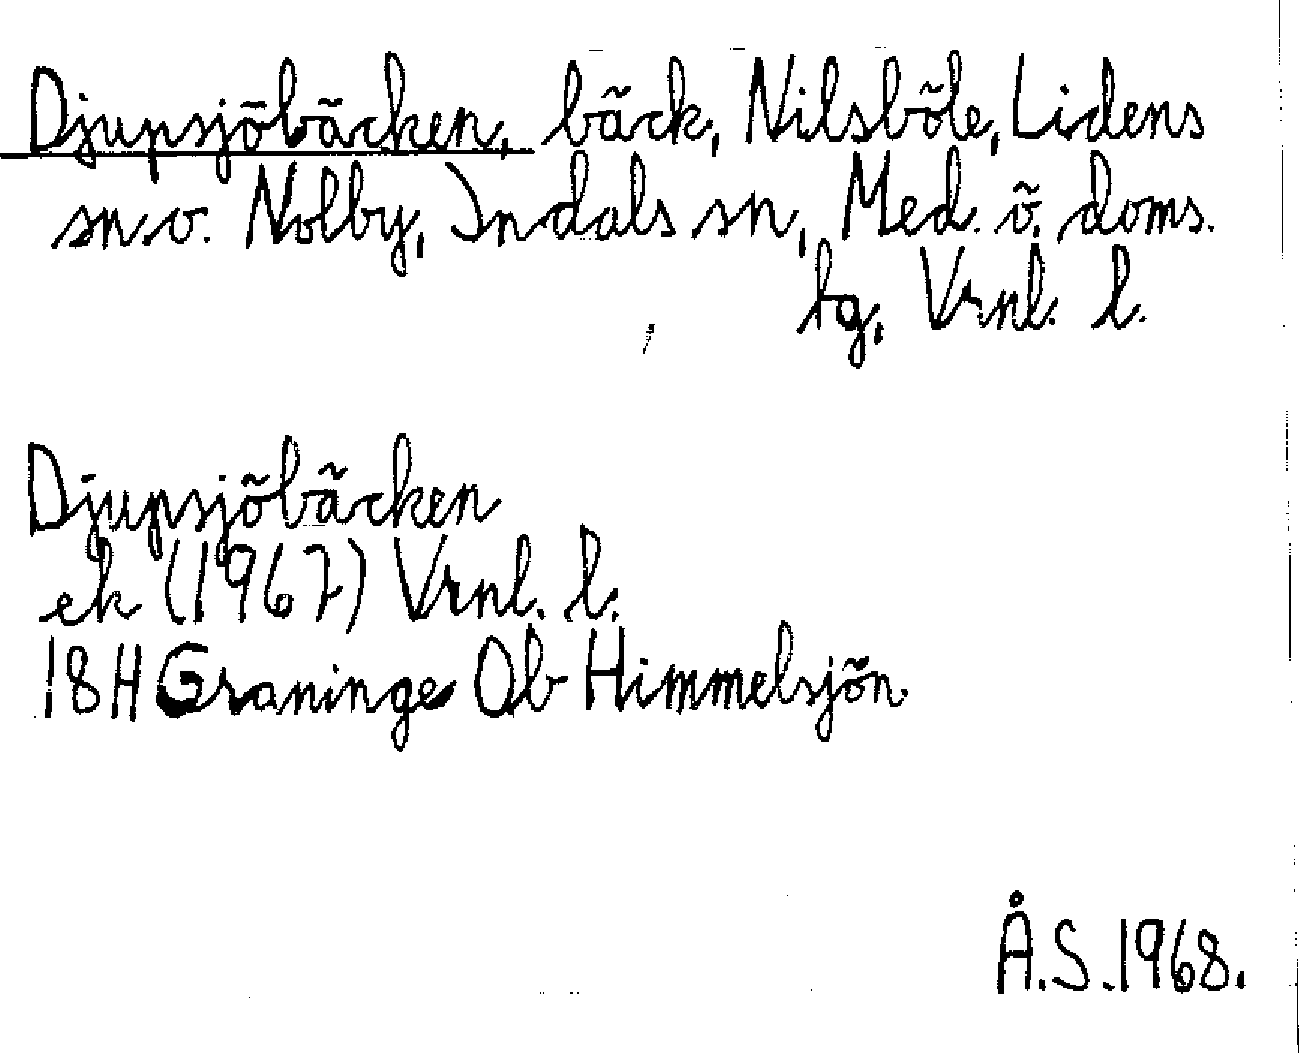 Djupsjöbäcken, bäck, Nilsböle, Lidens
sn. o. Nolby, Indals sn, Med. ö. doms.
hg, Vrnl. l.
Djupsjöbäcken
ek (1967) Vrnl. l.
18H Graninge Ob Himmelsjön
Å.S. 1968.